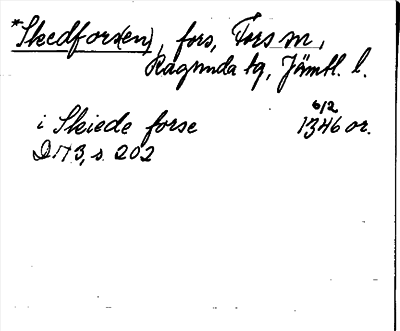 *Skedforsen), fors, Fors sn,
Ragunda tg, Jämtl. l.
6/2
i Skiede forse 1346 or.
DN 3, s. 202